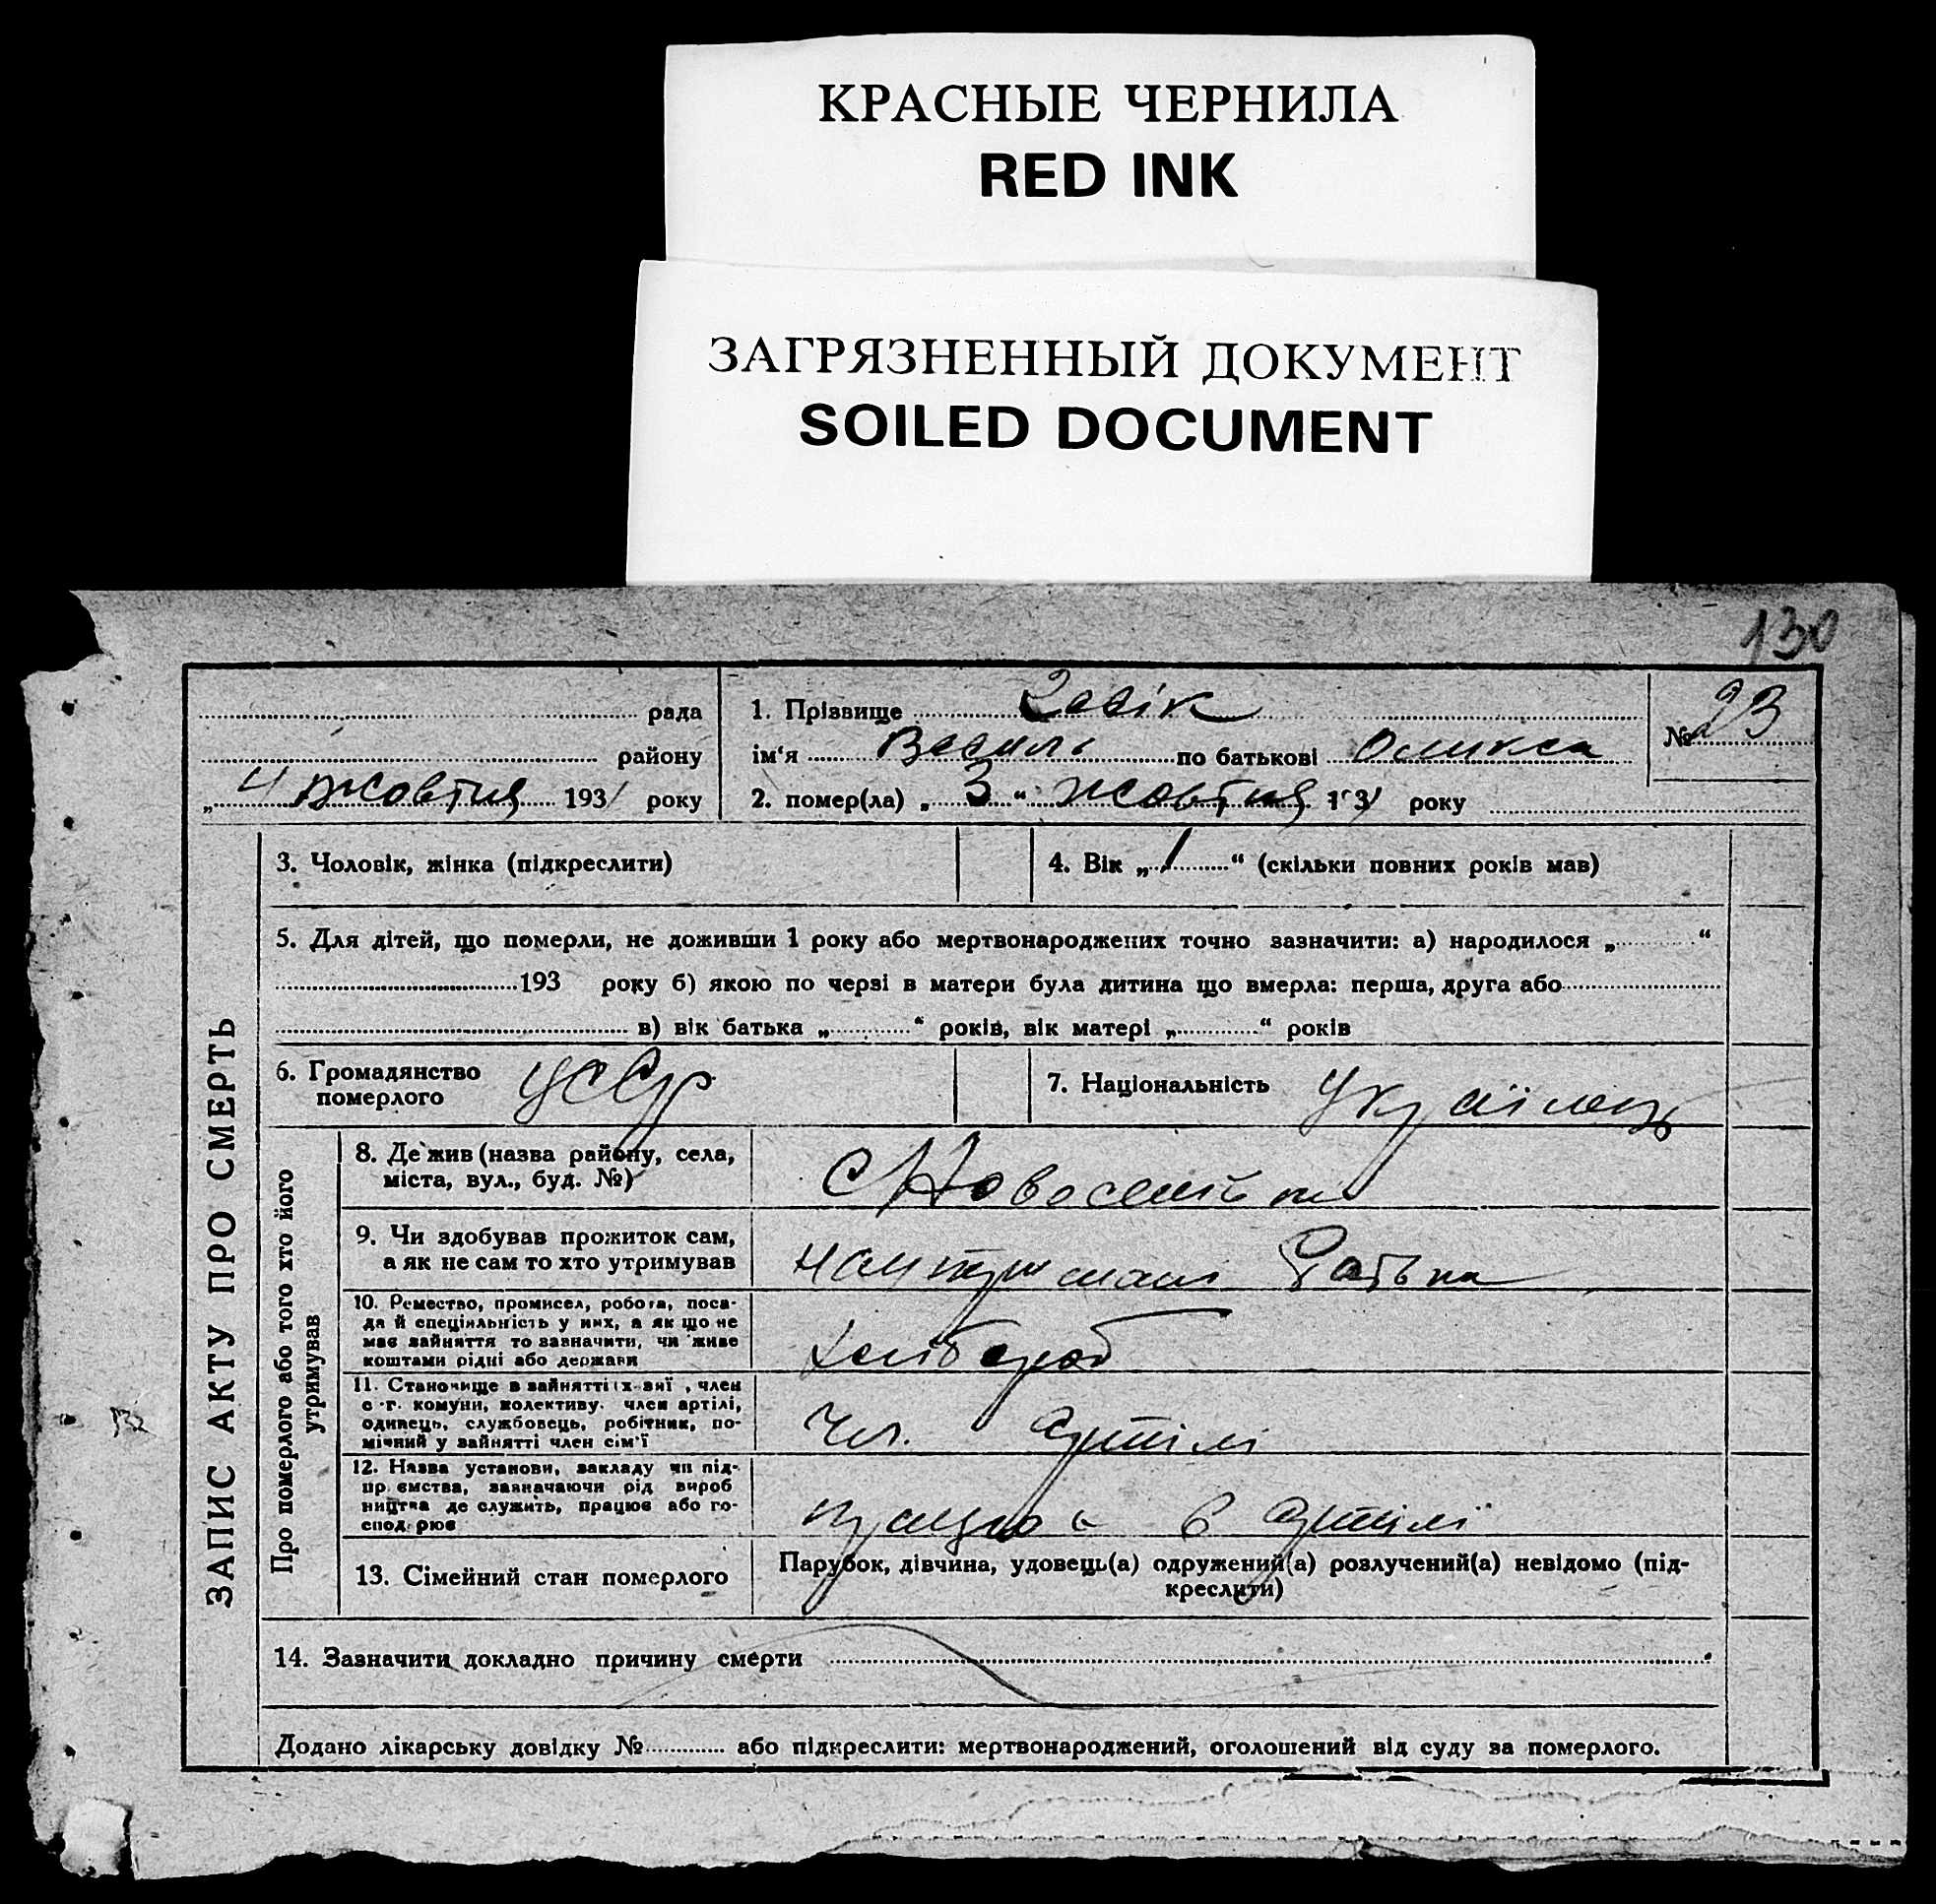 КРАСНЫЕ ЧЕРНИЛА
RED INK
ЗАГРЯЗНЕННЫЙ ДОКУМЕНТ
SOILED DOCUMENT
130
рада
району
„ 4 жовтня 1931 року
1. Прізвище
ім‘я Василь по батькові Олекса
2. помер(ла) „ 3 “ жовтня 1931 року
№ 23
ЗАПИС АКТУ ПРО СМЕРТЬ
3. Чоловік, жінка (підкреслити)
4. Вік „ 1 “ (скільки повних років мав)
5. Для дітей, що померли, не доживши 1 року або мертвонароджених точно зазначити: а) народилося „ “
193 року б) якою по черзі в матери була дитина що вмерла: перша, друга або
в) вік батька „ “ років, вік матері „ “ років
6. Громадянство
померлого
УССР
7. Національність Українец
Про померлого або того хто його
утримував
8. Де жив (назва району, села,
міста, вул., буд. №)
с Новоселівка
9. Чи здобував прожиток сам,
а як не сам то хто утримував
на утриманні батька
10. Ремество, промисел, робота, поса-
да й спеціяльність у них, а як що не
має зайняття то зазначити, чи живе
коштами рідні або держави
хлібороб
11. Становище в зайнятті (х-зві , член
с.-г. комуни, колективу. член артілі,
одинець, службовець, робітник, по-
мічний у зайнятті член сім‘ї
Чл. артілі
12. Назва установи, закладу чи під-
пр ємства, зазначаючи рід вироб
ництва де служить, працює або го-
спод рює
працює в артілі
13. Сімейний стан померлого
Парубок, дівчина, удовець(а) одружений(а) розлучений(а) невідомо (під-
креслити)
14. Зазначити докладно причину смерти
Додано лікарську довідку № або підкреслити: мертвонароджений, оголошений від суду за померлого.